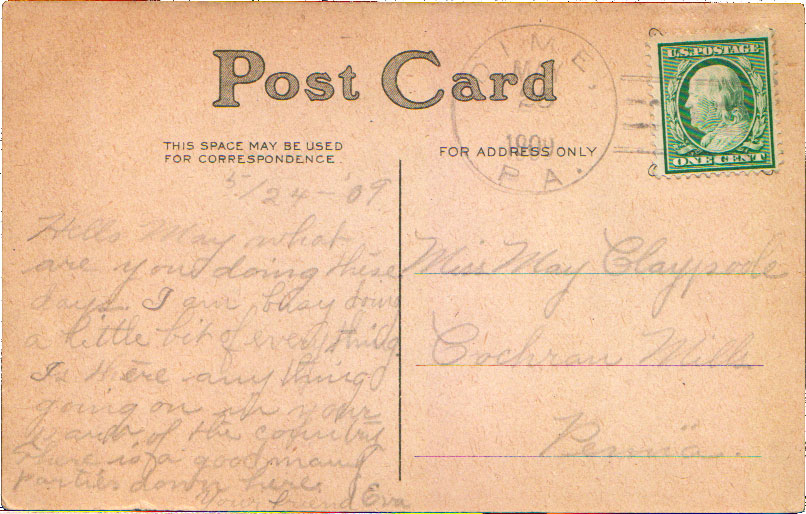 Post Card
DIME,
MAY
25
1909
PA.
U.S. POSTAGE
ONE CENT
THIS SPACE MAY BE USED
FOR CORRESPONDENCE.
FOR ADDRESS ONLY
5/24-'09
Hello May what
are you doing these
days. I am busy doing
a little bit of everything.
Is there anything
going on in your
of the country
There is a good many
parties down here.
Your friend Eva
Miss May Claypoole
Cochran Mills
Penna.